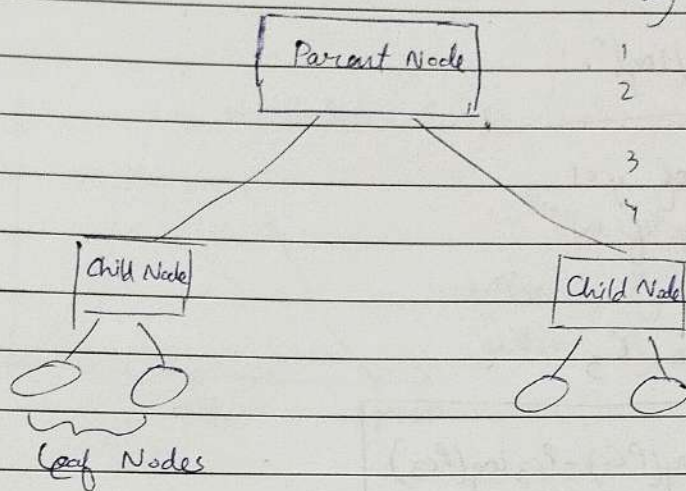 Parent Node
1
2
3
4
Child Node
Child Node
Leaf Nodes